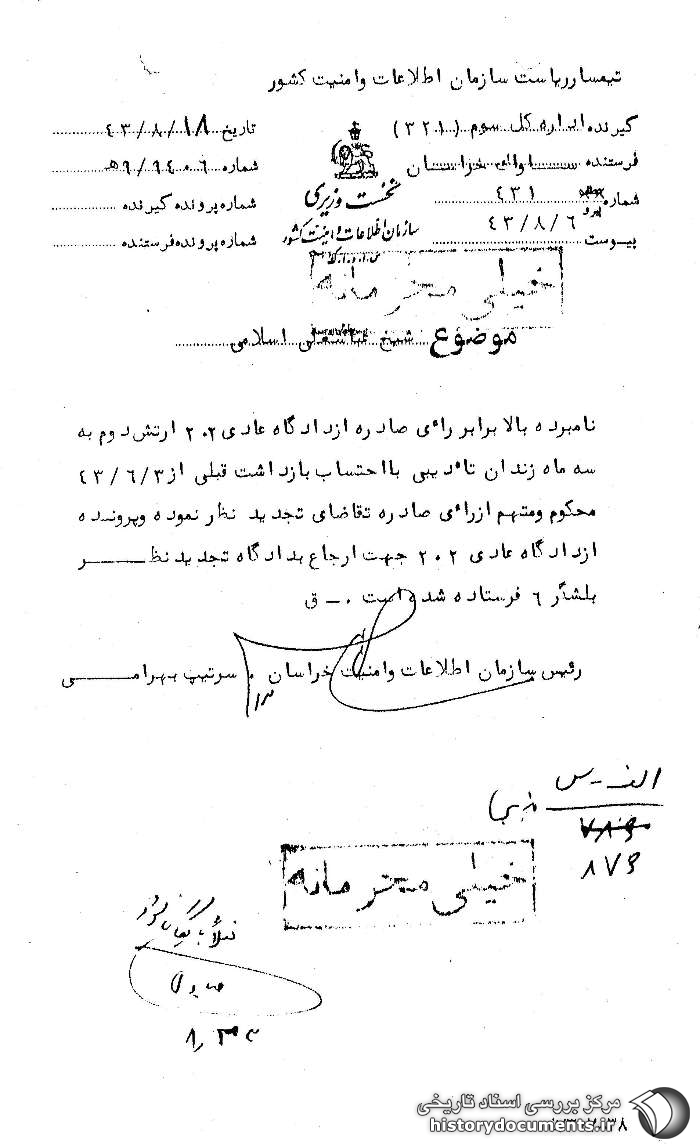 تیمسار ریاست سازمان اطلاعات وامنیت کشور
گیرنده اداره کل سوم (۳۲۱)
فرستنده ساواک خراسان
شماره ۴۳۱
پیوست ۴۳/۸/۶
نخست وزیری
سازمان اطلاعات و امنیت کشور
س.ا.و.ا.ک
تاریخ ۴۳/۸/۱۸
شماره ۹/۹۴۰۶ﻫ
شماره پرونده گیرنده
شماره پرونده فرستنده
خیلی محرمانه
موضوع شیخ عباسعلی اسلامی
نامبرده بالا برابر رائ صادره ازدادگاه عادی ۲۰۲ ارتش دوم به
سه ماه زندان تادیبی بااحتساب بازداشت قبلی از ۴۳/۶/۳
محکوم ومتهم ازرائ صادره تقاضای تجدید نظر نموده وپرونده
ازدادگاه عادی ۲۰۲ جهت ارجاع بدادگاه تجدید نظر
بلشگر ۶ فرستاده شده است ۰ ـ ق
رئیس سازمان اطلاعات وامنیت خراسان ۰ سرتیپ بهرامی
الف ـ س
۷۸۹
۸۷۶
خیلی محرمانه
مرکز بررسی اسناد تاریخی
historydocuments.ir